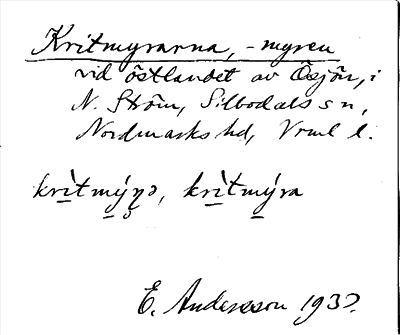 Kritmyrarna, -myren
vid östlandet av Ösjön, i
N. Ström, Silbodals sn,
Nordmarks hd, Vrml l.
krìtmýṇə, krìtmýra
E. Andersson 1932.